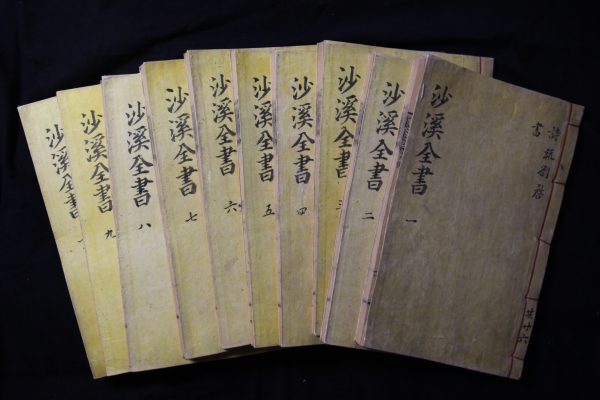 沙溪全書
一
書
共廿六
沙溪全書
二
沙溪全書
三
沙溪全書
四
沙溪全書
五
沙溪全書
六
沙溪全書
七
沙溪全書
八
沙溪全書
九
沙溪全書